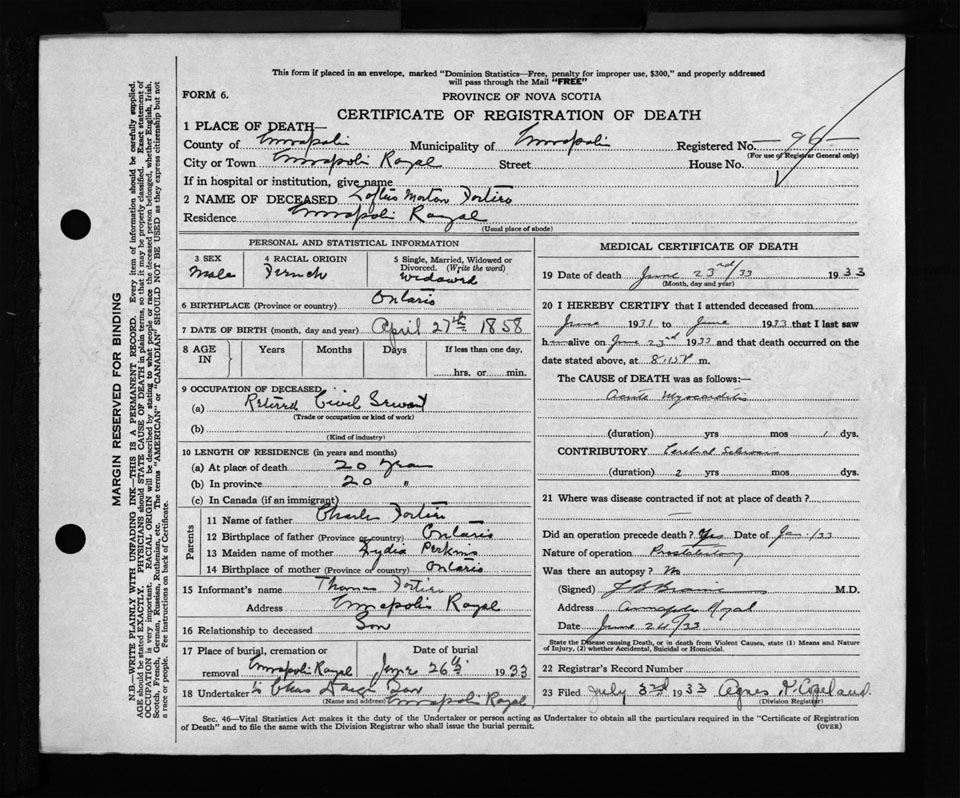 This form if placed in an envelope, marked "Dominion Statistics—Free, penalty for improper use, $300," and properly addressed
will pass through the Mail "FREE"
FORM 6.
PROVINCE OF NOVA SCOTIA
CERTIFICATE OF REGISTRATION OF DEATH
1 PLACE OF DEATH—
County of Annapolis Municipality of Annapolis Registered No. 96
(For use of Registrar General only)
City or Town Annapolis Royal Street House No.
If in hospital or institution, give name
2 NAME OF DECEASED Loftus Morton Fortier
Residence Annapolis Royal
(Usual place of abode)
PERSONAL AND STATISTICAL INFORMATION
3 SEX 4 RACIAL ORIGIN 5 Single, Married, Widowed or
Divorced. (Write the word)
Male French Widowed
6 BIRTHPLACE (Province or country) Ontario
7 DATE OF BIRTH (month, day and year) April 27th 1858
8 AGE IN Years Months Days If less than one day,
hrs. or min.
9 OCCUPATION OF DECEASED
(a) Retired Civil Servant
(Trade or occupation or kind of work)
(b)
(Kind of industry)
10 LENGTH OF RESIDENCE (in years and months)
(a) At place of death 20 years
(b) In province 20 "
(c) In Canada (if an immigrant)
Parents
11 Name of father Charles Fortier
12 Birthplace of father (Province or country) Ontario
13 Maiden name of mother Lydia Perkins
14 Birthplace of mother (Province or country) Ontario
15 Informant's name Thomas Fortier
Address Annapolis Royal
16 Relationship to deceased Son
17 Place of burial, cremation or Date of burial
removal Annapolis Royal June 26th 1933
18 Undertaker Chas Son
(Name and address) Annapolis Royal
MEDICAL CERTIFICATE OF DEATH
19 Date of death June 23rd/33 1933
(Month, day and year)
20 I HEREBY CERTIFY that I attended deceased from
June 1931 to June 1933 that I last saw
him alive on June 23rd 1933 and that death occurred on the
date stated above, at 8.15P m.
The CAUSE OF DEATH was as follows:—
Acute Myocarditis
(duration) yrs mos 1 dys.
CONTRIBUTORY Cerebral Sclerosis
(duration) 2 yrs mos dys.
21 Where was disease contracted if not at place of death?
—
Did an operation precede death? Yes Date of Jan/33
Nature of operation Prostatectomy
Was there an autopsy? No
(Signed) M.D.
Address Annapolis Royal
Date June 24/33
State the Disease causing Death, or in death from Violent Causes, state (1) Means and Nature
of Injury, (2) whether Accidental, Suicidal or Homicidal.
22 Registrar's Record Number
23 Filed July 3rd 1933 Agnes Copeland
(Division Registrar)
Sec. 46—Vital Statistics Act makes it the duty of the Undertaker or person acting as Undertaker to obtain all the particulars required in the "Certificate of Registration
of Death" and to file the same with the Division Registrar who shall issue the burial permit. (OVER)
MARGIN RESERVED FOR BINDING
N.B.—WRITE PLAINLY WITH UNFADING INK—THIS IS A PERMANENT RECORD. Every item of information should be carefully supplied.
AGE should be stated EXACTLY. PHYSICIANS should STATE CAUSE OF DEATH in plain terms, so that it may be properly classified. Exact statement of
OCCUPATION is very important. RACIAL ORIGIN will be described by stating to what people or race the deceased person belonged, whether English, Irish,
Scotch, French, German, Russian, Ruthenian, etc. The terms "AMERICAN" or "CANADIAN" SHOULD NOT BE USED as they express citizenship but not
a race or people. Fee instructions on back of Certificate.